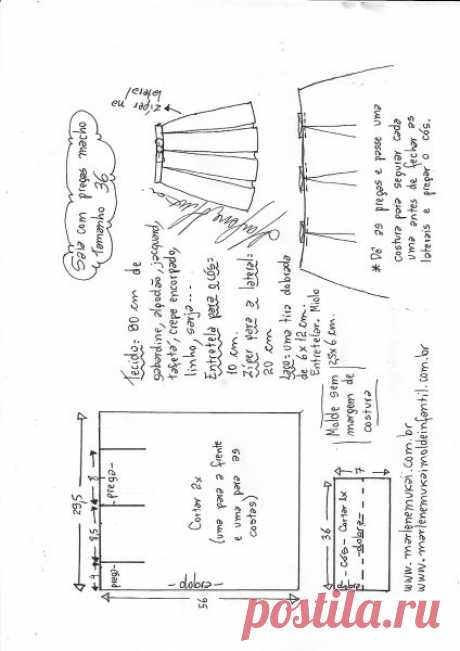 Saia com pregas macho
Tamanho 36
zíper na
lateral
Tecido: 80 cm de
gabardine, algodão, jacquard,
tafetá, crepe encorpado,
linho, sarja....
Entretela para o cós:
10 cm.
Zíper para a lateral:
20 cm
Laço: uma tira dobrada
de 6x12cm. Miolo
Entretelar.
2,5x6 cm.
Molde sem
margem de
costura
* Dê as pregas e passe uma
costura para segurar cada
uma antes de fechar as
laterais e pregar o cós.
29,5
4
8,5
8
prega
prega
Cortar 2x
(uma para a frente
e uma para as
costas)
dobra
56
36
7
Cós - Cortar 1x
dobra
dobra
www.marlenemukai.com.br
www.marlenemukaimoldeinfantil.com.br
postila.ru